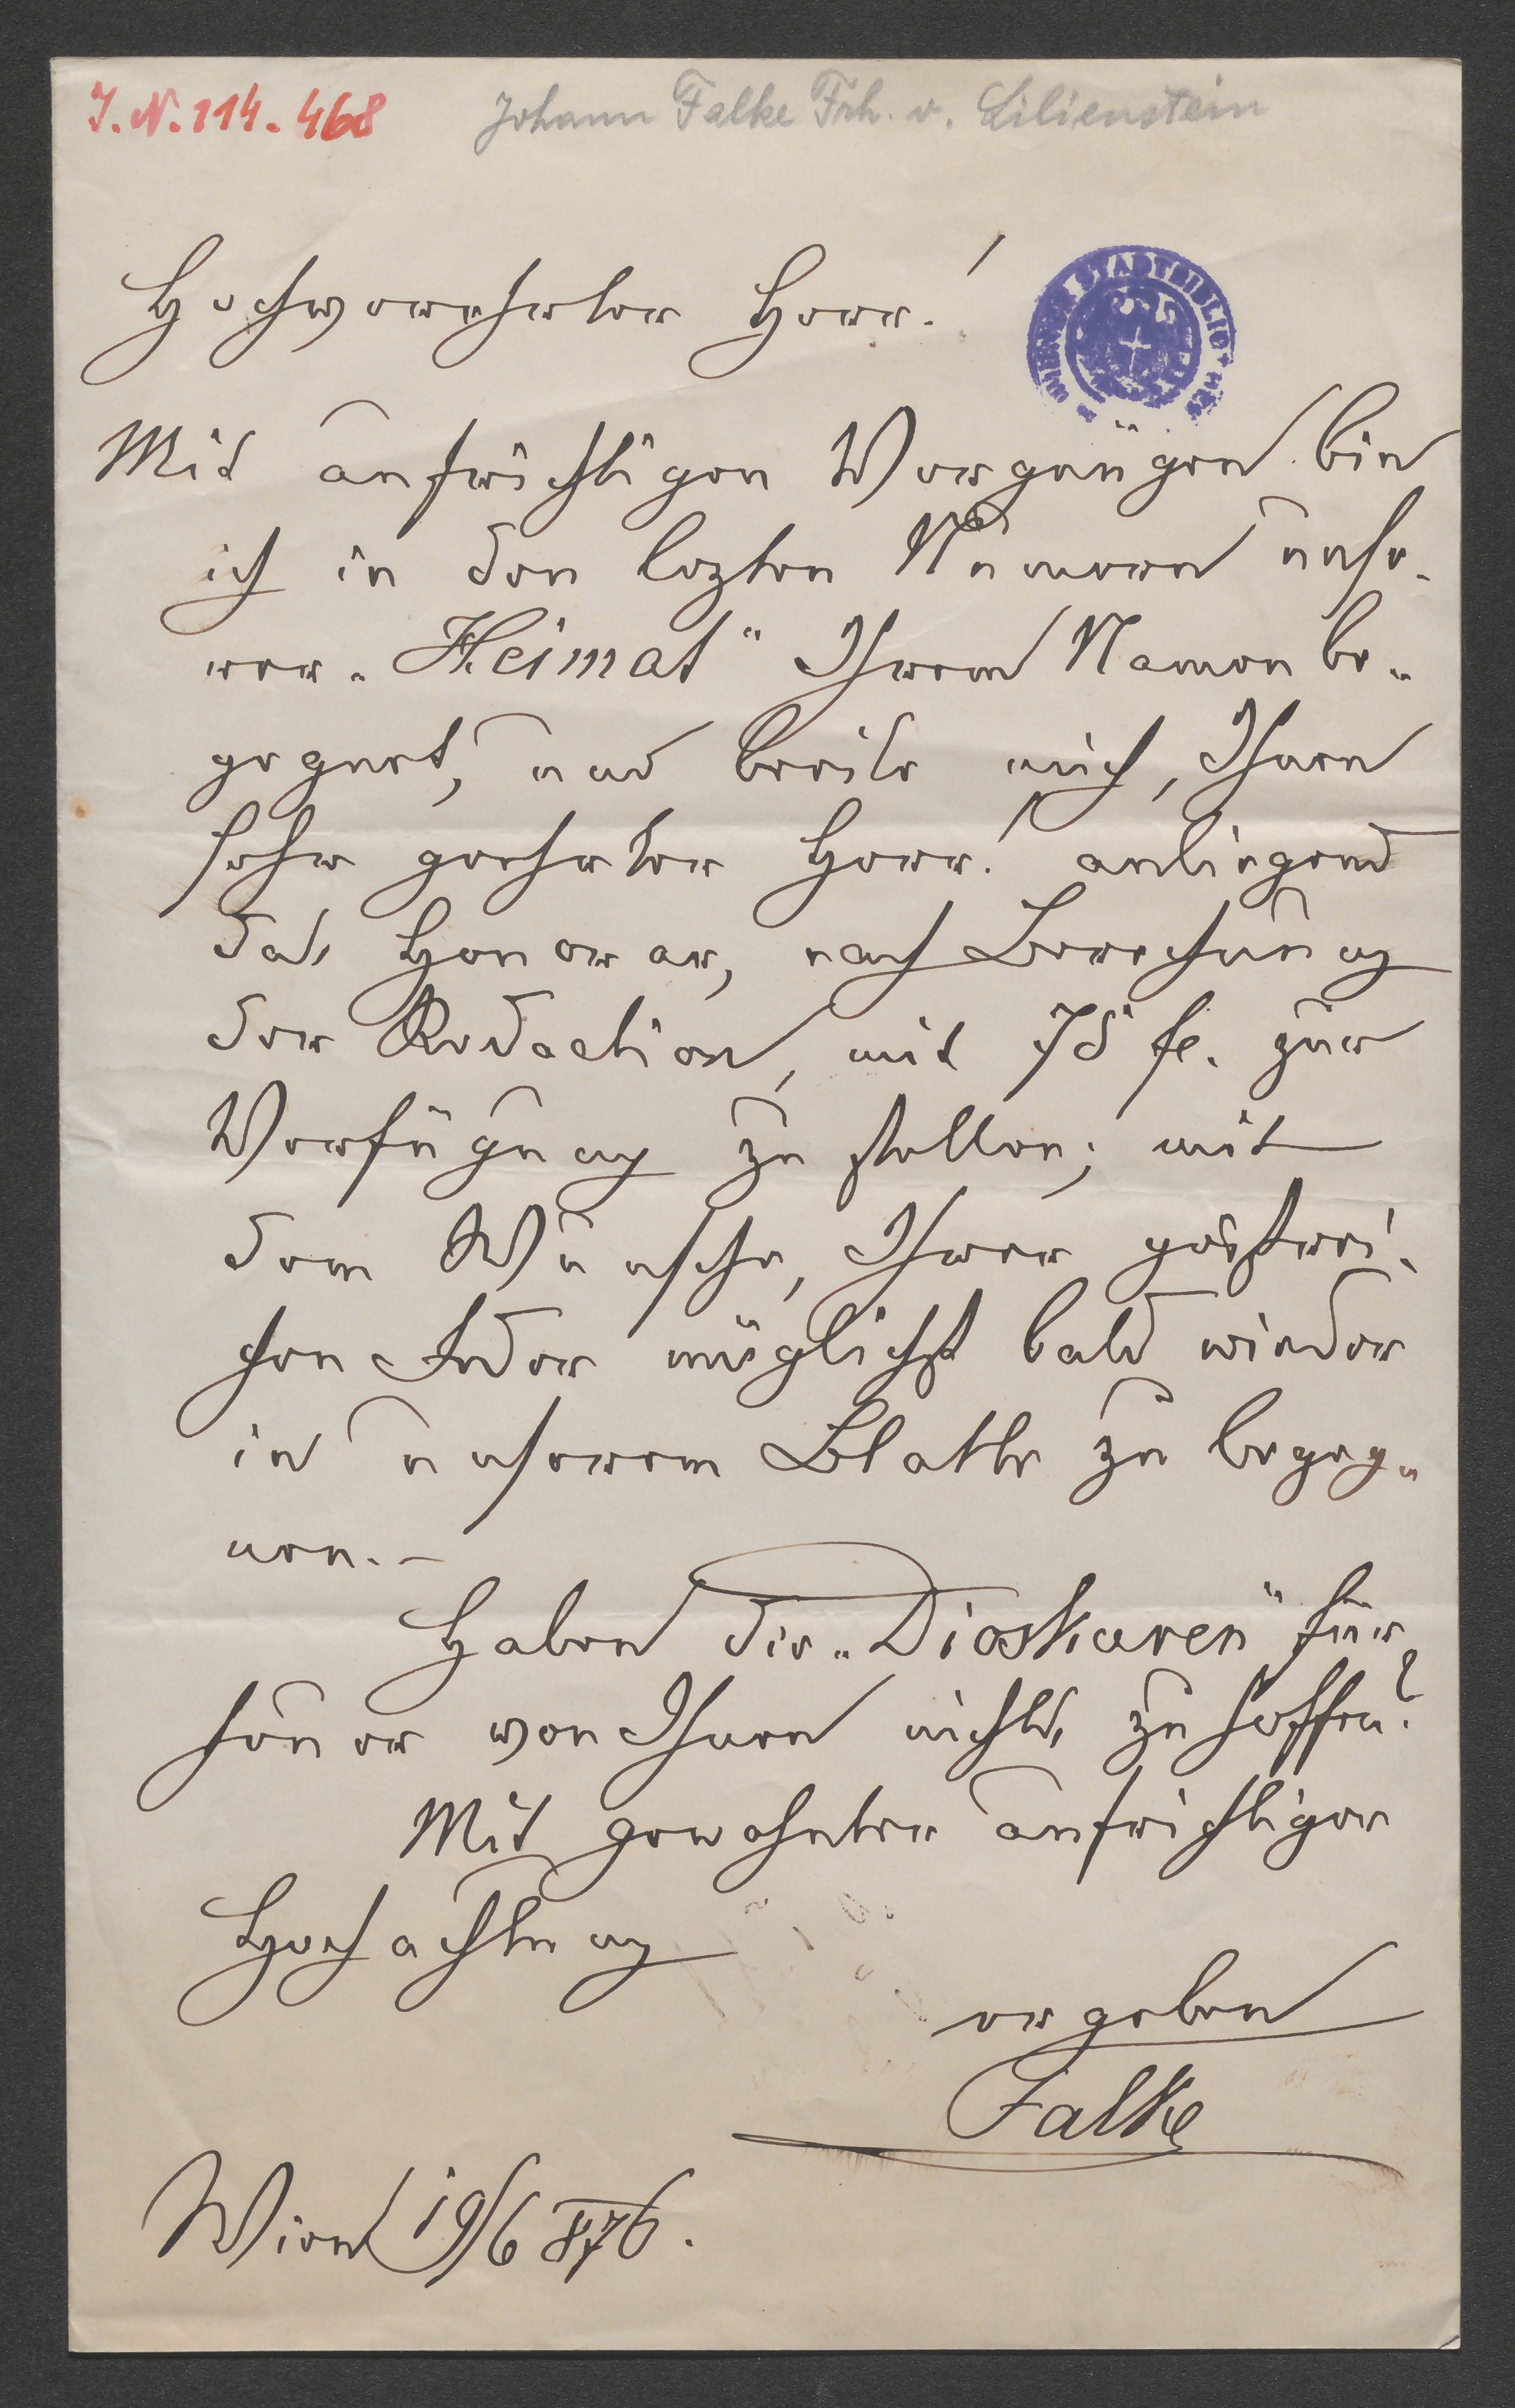 J. N. 114.468
Johann Falke Frh. v. Lilienstein
WIENER STADTBIBLIOTHEK
Hochverehrter Herr!
Mit aufrichtigen Vergnügen bin
ich in den lezten Numern unse-
rer „Heimat" Ihrem Namen be-
gegnet, und beeile mich, Ihnen
sehr geehrter Herr! anliegend
das Honorar, nach Berechnung
der Redaction, mit 75 fl. zur
Verfügung zu stellen; mit
dem Wunsche, Ihrer geistrei-
chen Feder möglichst bald wieder
in unserem Blatte zu begeg-
nen.–
Haben die „Dioskuren" für
heuer von Ihnen nichts zu hoffen?
Mit gewohnter aufrichtiger
Hochachtung
ergeben
Falke
Wien 19/6 876.